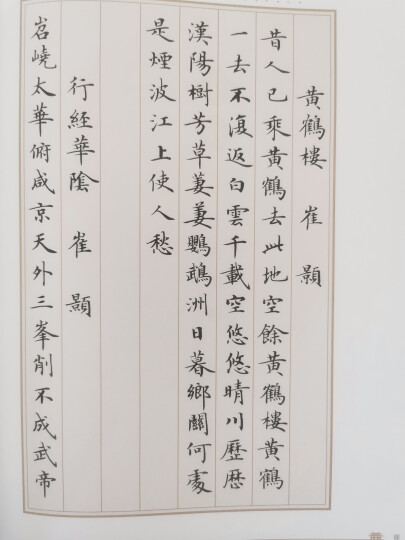 黃鶴樓 崔顥
昔人已乘黃鶴去此地空餘黃鶴樓黃鶴
一去不復返白雲千載空悠悠晴川歷歷
漢陽樹芳草萋萋鸚鵡洲日暮鄉關何處
是煙波江上使人愁
行經華陰 崔顥
岧嶢太華俯咸京天外三峯削不成武帝